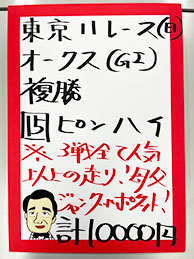 東京11レース(日)
オークス(GI)
複勝
15 ピンハイ
※3戦全て人気
以上の走り、!母父
ジャングルポケット!
計10000円